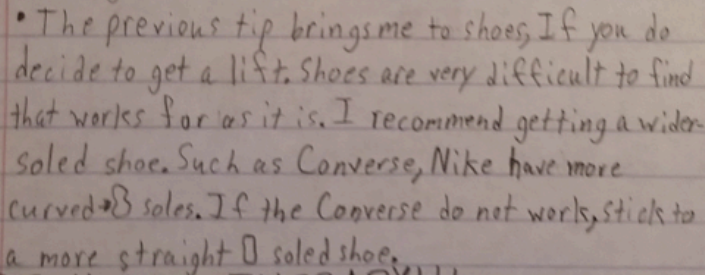 • The previous tip brings me to shoes, If you do
decide to get a lift. Shoes are very difficult to find
that works for as it is. I recommend getting a wider
soled shoe. Such as Converse, Nike have more
curved→ soles. If the Converse do not work, stick to
a more straight soled shoe.